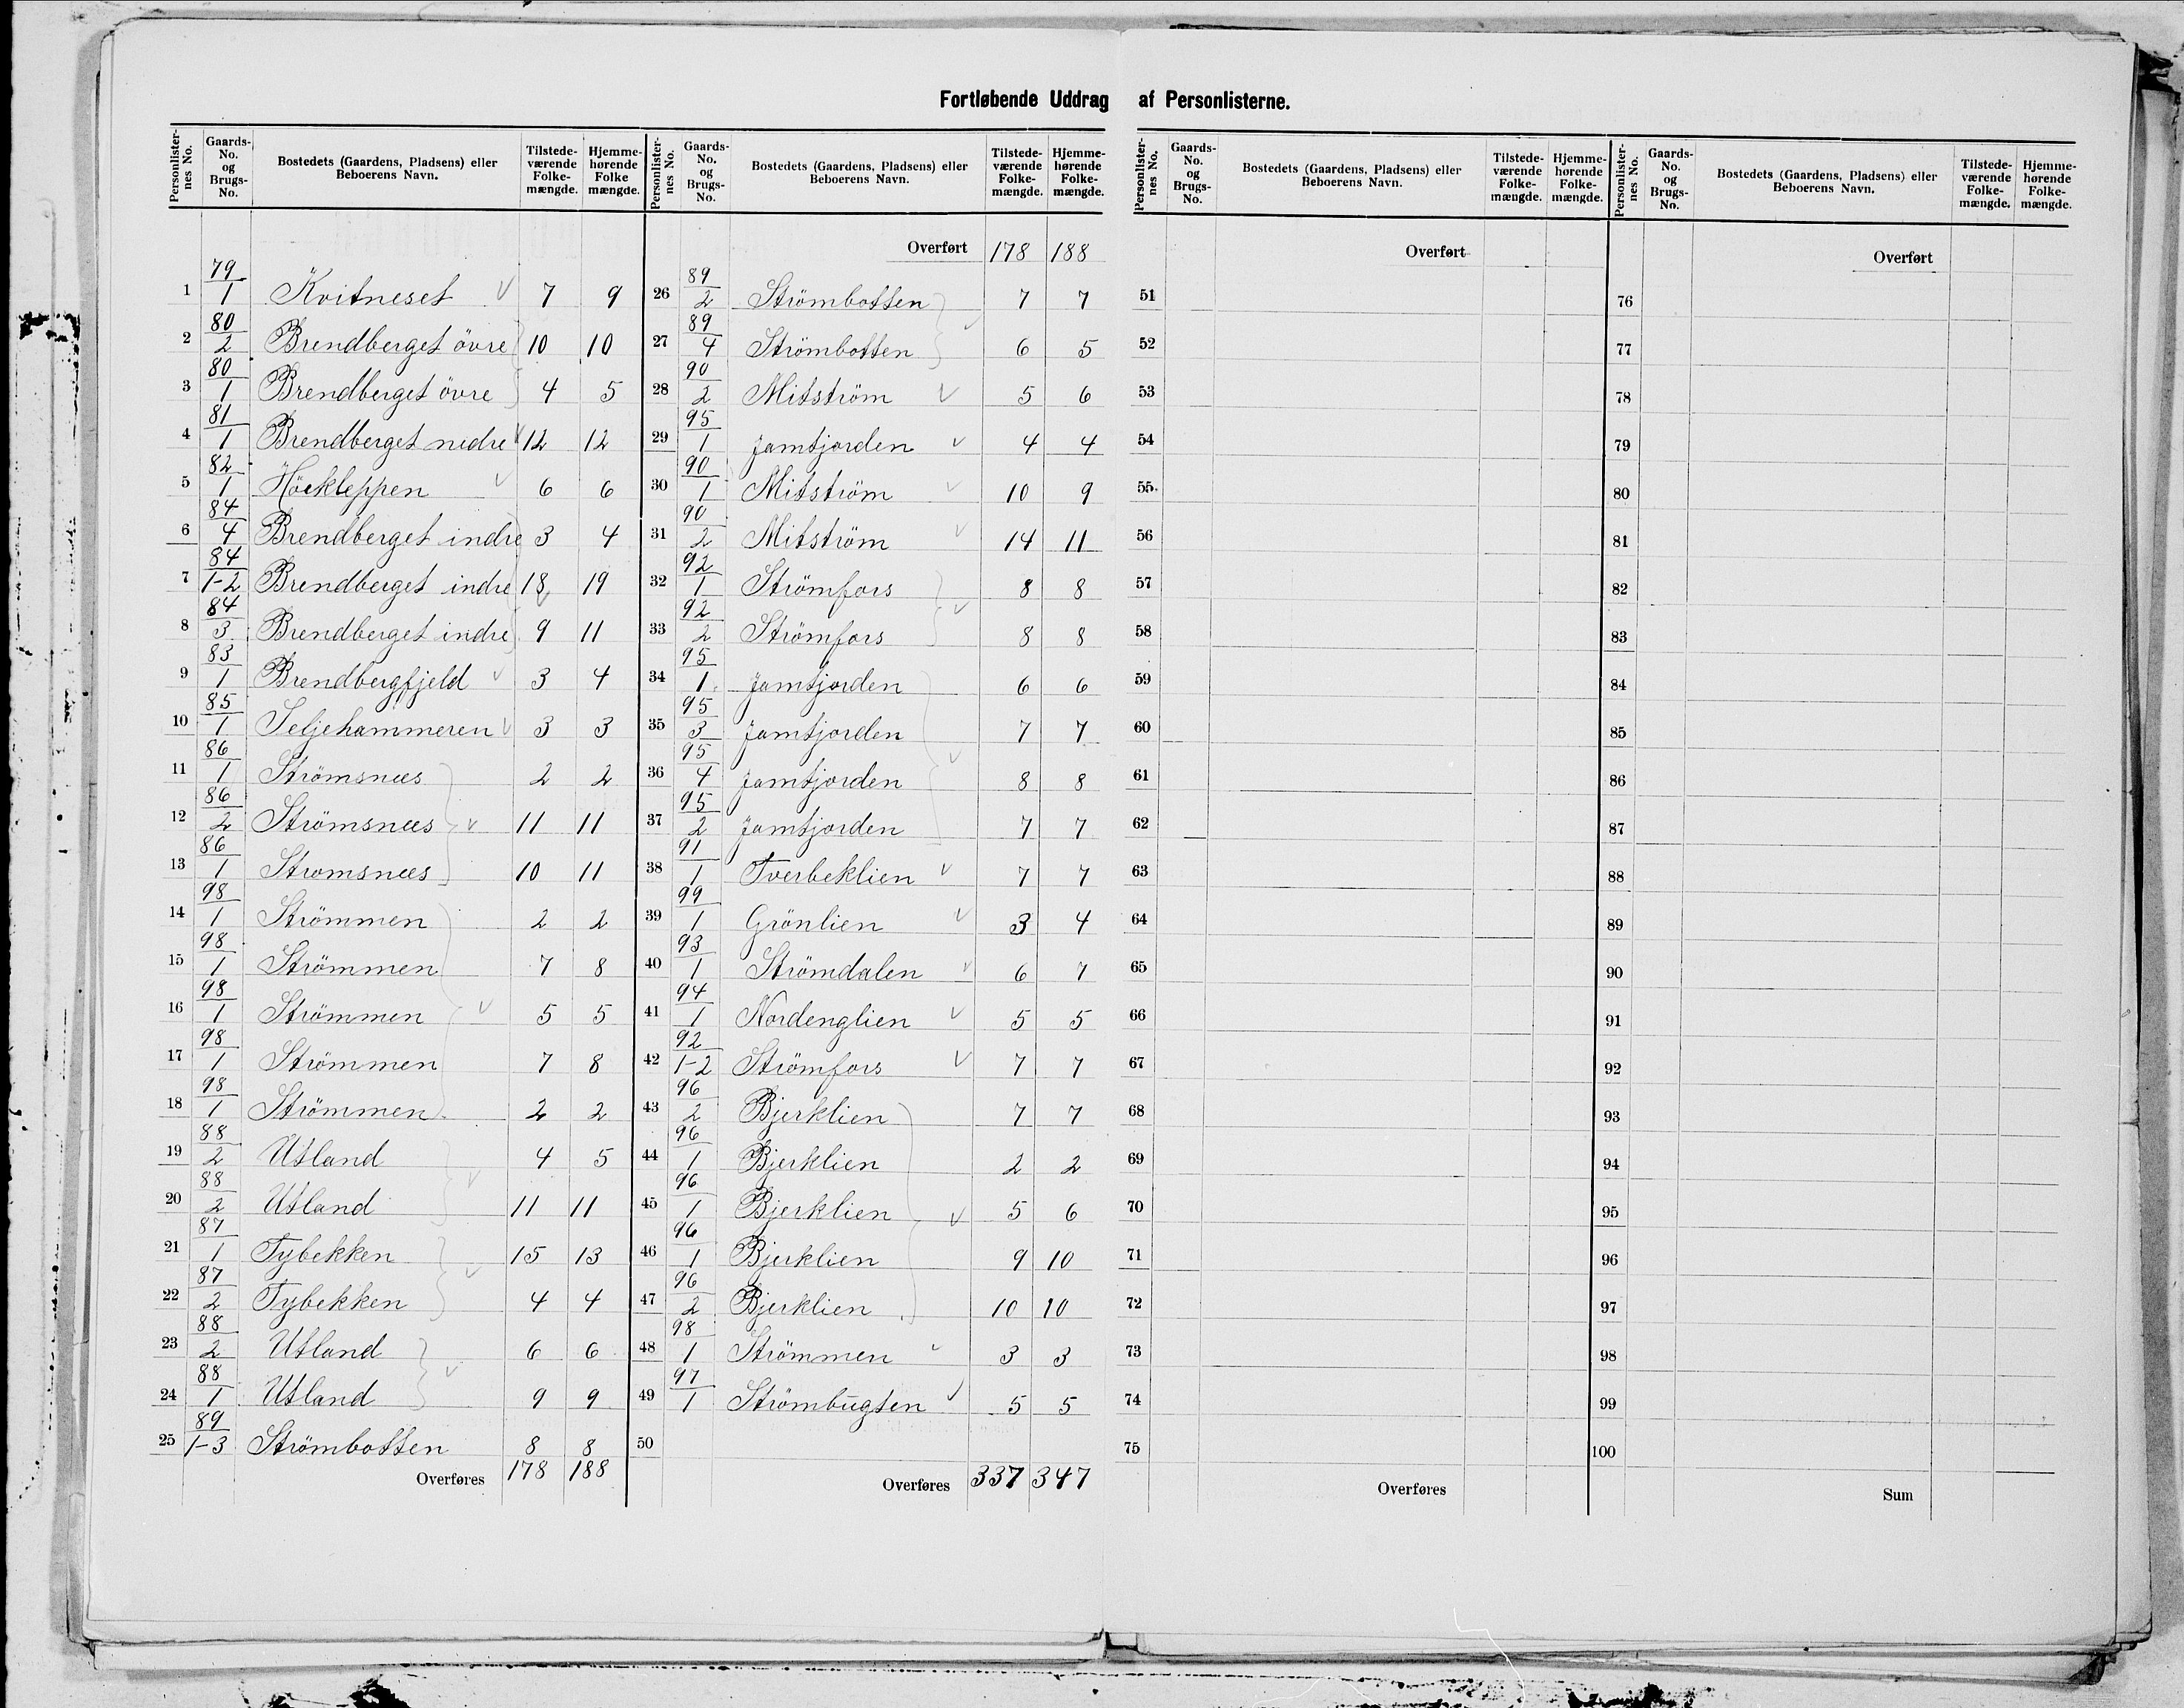 Fortløbende Uddrag af Personlisterne.
Personlisternes No. | Gaards-No. og Brugs-No. | Bostedets (Gaardens, Pladsens) eller Beboerens Navn. | Tilstedeværende Folkemængde. | Hjemmehørende Folkemængde.
1 | 79/1 | Kvitneset | 7 | 9
2 | 80/2 | Brendberget övre | 10 | 10
3 | 80/1 | Brendberget övre | 4 | 5
4 | 81/1 | Brendberget nedre | 12 | 12
5 | 82/1 | Höekleppen | 6 | 6
6 | 84/4 | Brendberget indre | 3 | 4
7 | 84/1-2 | Brendberget indre | 18 | 19
8 | 84/3 | Brendberget indre | 9 | 11
9 | 83/1 | Brendbergfjeld | 3 | 4
10 | 85/1 | Seljehammeren | 3 | 3
11 | 86/1 | Strömsnæs | 2 | 2
12 | 86/2 | Strömsnæs | 11 | 11
13 | 86/1 | Stromsnæs | 10 | 11
14 | 98/1 | Strömmen | 2 | 2
15 | 98/1 | Strömmen | 7 | 8
16 | 98/1 | Strömmen | 5 | 5
17 | 98/1 | Strömmen | 7 | 8
18 | 98/1 | Strömmen | 2 | 2
19 | 88/2 | Utland | 4 | 5
20 | 88/2 | Utland | 11 | 11
21 | 87/1 | Tybekken | 15 | 13
22 | 87/2 | Tybekken | 4 | 4
23 | 88/2 | Utland | 6 | 6
24 | 88/1 | Utland | 9 | 9
25 | 89/1-3 | Strömbotten | 8 | 8
Overføres | 178 | 188
Personlisternes No. | Gaards-No. og Brugs-No. | Bostedets (Gaardens, Pladsens) eller Beboerens Navn. | Tilstedeværende Folkemængde. | Hjemmehørende Folkemængde.
Overført | 178 | 188
26 | 89/2 | Strömbotten | 7 | 7
27 | 89/4 | Strömbotten | 6 | 5
28 | 90/2 | Mitström | 5 | 6
29 | 95/1 | Jamtjorden | 4 | 4
30 | 90/1 | Mitström | 10 | 9
31 | 90/2 | Mitström | 14 | 11
32 | 92/1 | Strömfors | 8 | 8
33 | 92/2 | Strömfors | 8 | 8
34 | 95/1 | Jamtjorden | 6 | 6
35 | 95/3 | Jamtjorden | 7 | 7
36 | 95/4 | Jamtjorden | 8 | 8
37 | 95/2 | Jamtjorden | 7 | 7
38 | 91/1 | Tverbeklien | 7 | 7
39 | 99/1 | Grönlien | 3 | 4
40 | 93/1 | Strömdalen | 6 | 7
41 | 94/1 | Nordenglien | 5 | 5
42 | 92/1-2 | Strömfors | 7 | 7
43 | 96/2 | Bjerklien | 7 | 7
44 | 96/1 | Bjerklien | 2 | 2
45 | 96/1 | Bjerklien | 5 | 6
46 | 96/1 | Bjerklien | 9 | 10
47 | 96/2 | Bjerklien | 10 | 10
48 | 98/1 | Strömmen | 3 | 3
49 | 97/1 | Strömbugten | 5 | 5
50
Overføres | 337 | 347
Personlisternes No. | Gaards-No. og Brugs-No. | Bostedets (Gaardens, Pladsens) eller Beboerens Navn. | Tilstedeværende Folkemængde. | Hjemmehørende Folkemængde.
Overført
51
52
53
54
55
56
57
58
59
60
61
62
63
64
65
66
67
68
69
70
71
72
73
74
75
Overføres
Personlisternes No. | Gaards-No. og Brugs-No. | Bostedets (Gaardens, Pladsens) eller Beboerens Navn. | Tilstedeværende Folkemængde. | Hjemmehørende Folkemængde.
Overført
76
77
78
79
80
81
82
83
84
85
86
87
88
89
90
91
92
93
94
95
96
97
98
99
100
Sum